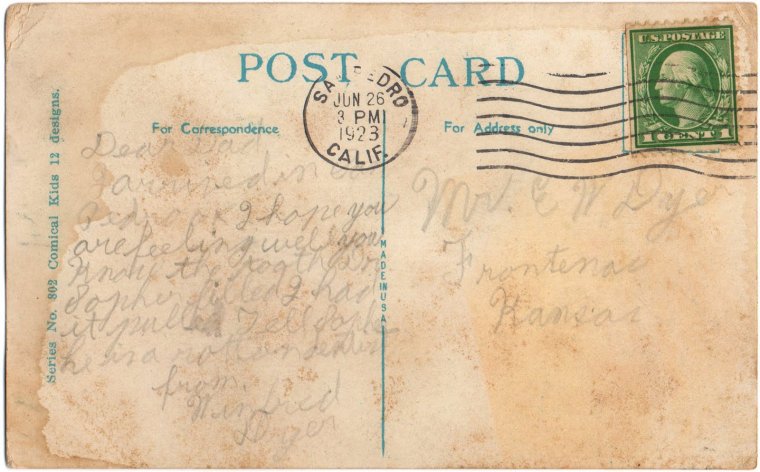 POST CARD
SAN PEDRO
JUN 26
3 PM
1923
CALIF.
U.S. POSTAGE
1 CENT 1
For Correspondence
For Address only
Series No. 802 Comical Kids 12 designs.
MADE IN USA
Dear Dad
I arrived in
Pedro I hope you
are feeling well you
know the tooth
filled I had
it pulled Tell
he is a rotten
from.
Winfred
Dyer
Mr. E W Dyer
Frontenac
Kansas